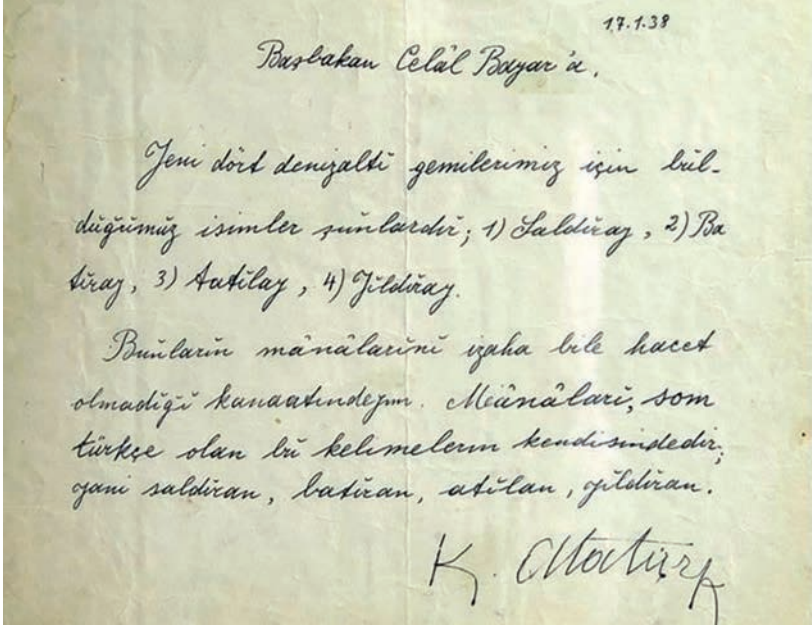 17.1.38
Başbakan Celâl Bayar'a,
Yeni dört denizaltı gemilerimiz için bul-
duğumuz isimler şunlardır; 1) Saldıray, 2) Ba
tıray, 3) Atılay, 4) Yıldıray.
Bunların mânâlarını izaha bile hacet
olmadığı kanaatındeyim. Mânâları, som
türkçe olan bu kelimelerin kendisindedir;
yani saldıran, batıran, atılan, yıldıran.
K. Atatürk